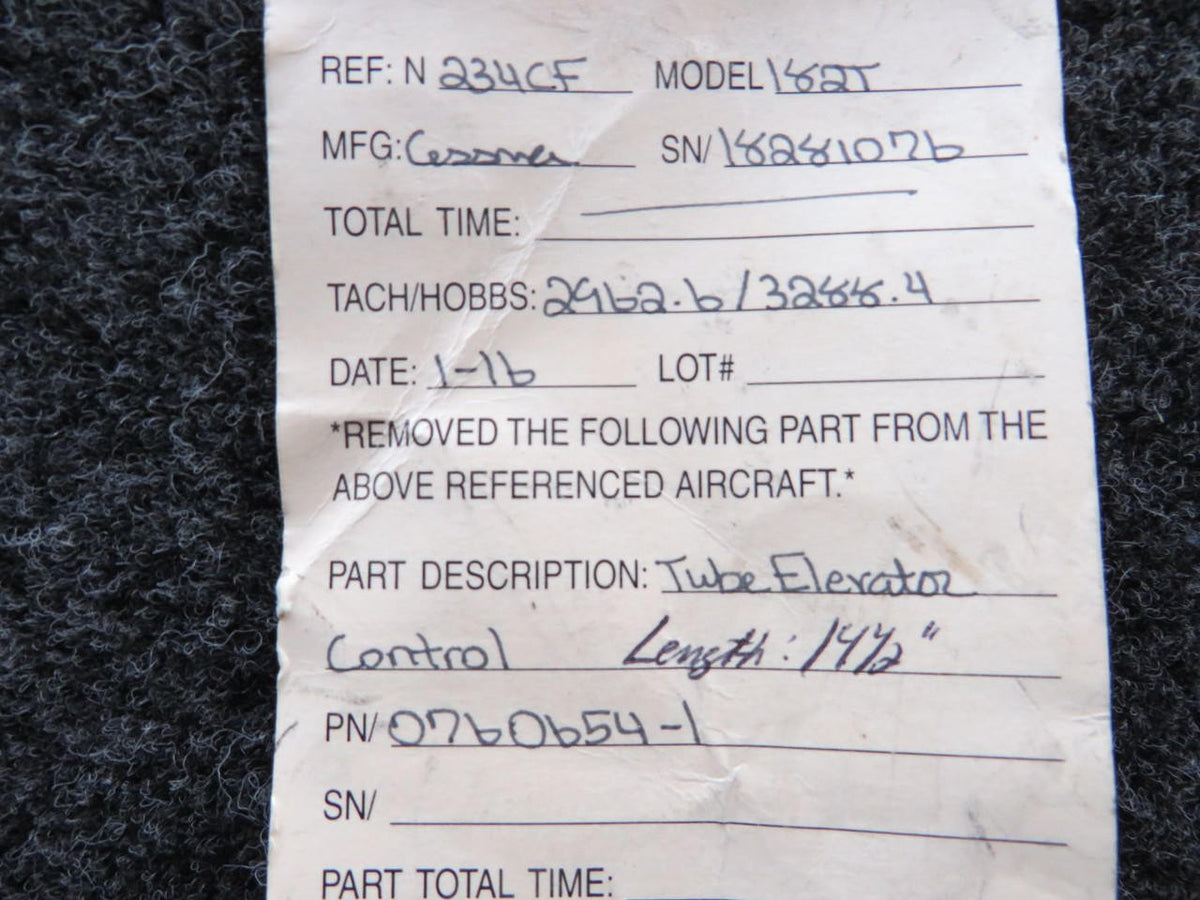 REF: N 234CF MODEL 182T
MFG: Cessna SN/ 18281076
TOTAL TIME:
TACH/HOBBS: 2962.6 / 3288.4
DATE: 1-16 LOT#
*REMOVED THE FOLLOWING PART FROM THE
ABOVE REFERENCED AIRCRAFT.*
PART DESCRIPTION: Tube Elevator
Control Length: 14½"
PN/ 0760654-1
SN/
PART TOTAL TIME: